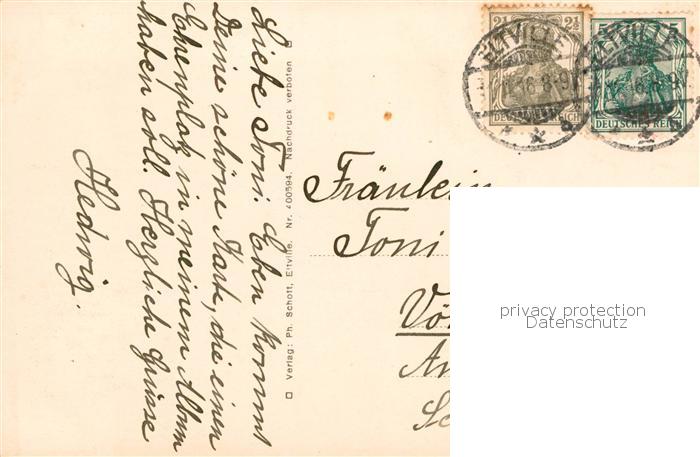 Liebe Toni! Eben kommt
Deine schöne Karte, die einen
Ehrenplatz in meinem Album
haben soll. Herzliche Grüsse
Hedwig.
Verlag: Ph. Schott, Eltville. Nr. 400594. Nachdruck verboten
2½ 2½
DEUTSCHES REICH
5 5
DEUTSCHES REICH
ELTVILLE
ELTVILLE
Fräulein
Toni
privacy protection
Datenschutz